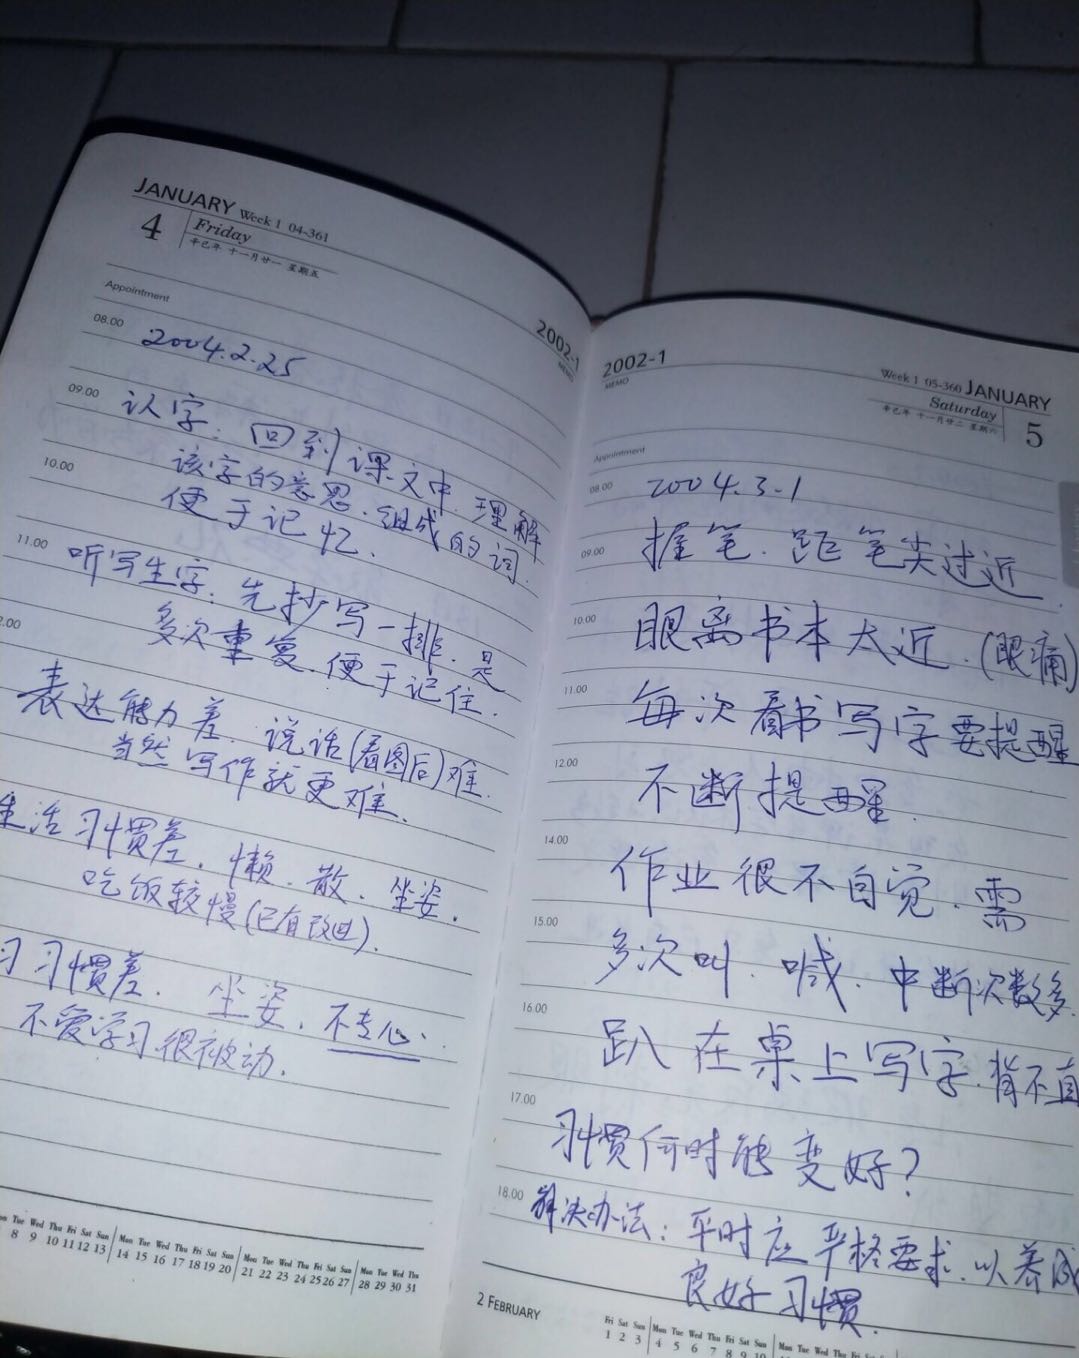 JANUARY Week 1 04-361
4 Friday
辛巳年 十一月廿一 星期五
2002-1
MEMO
Appointment
08.00 2004.2.25
09.00 认字：回到课文中.理解
该字的意思.组成的词.
10.00 便于记忆.
11.00 听写生字：先抄写一排.是
多次重复.便于记住.
2.00 表达能力差.说话(看图后)难.
当然写作就更难.
生活习惯差.懒.散.坐姿.
吃饭较慢(已有改进).
习习惯差.坐姿.不专心.
不爱学习.很被动.
Mon Tue Wed Thu Fri Sat Sun Mon Tue Wed Thu Fri Sat Sun Mon Tue Wed Thu Fri Sat Sun Mon Tue Wed Thu
8 9 10 11 12 13 14 15 16 17 18 19 20 21 22 23 24 25 26 27 28 29 30 31
2002-1
MEMO
Week 1 05-360 JANUARY
Saturday 5
辛巳年 十一月廿二 星期六
Appointment
08.00 2004.3.1
09.00 握笔.距笔尖过近.
10.00 眼离书本太近.(眼痛)
11.00 每次看书写字要提醒
12.00 不断提醒.
14.00 作业很不自觉.需
15.00 多次叫.喊.中断次数多.
16.00 趴在桌上写字.背不直
17.00 习惯何时能变好?
18.00 解决办法：平时应严格要求.以养成
良好习惯.
2 FEBRUARY
Fri Sat Sun Mon Tue Wed Thu Fri Sat Sun Mon Tue
1 2 3 4 5 6 7 8 9 10